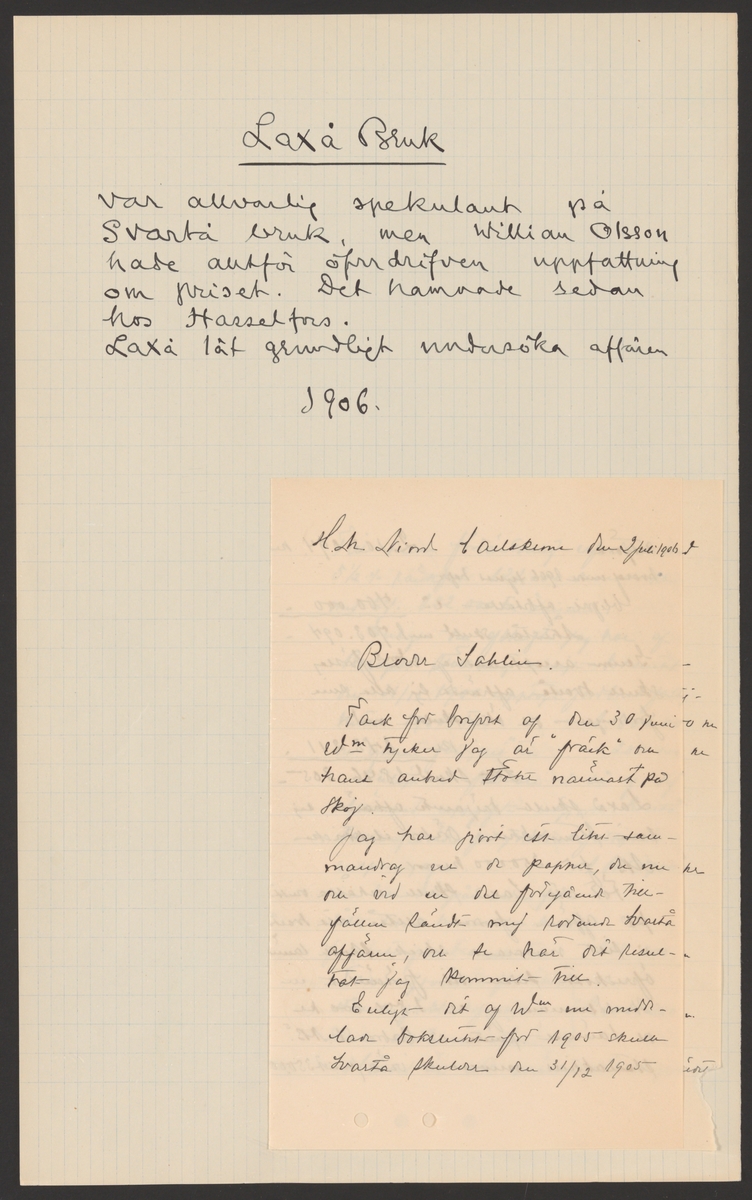 Laxå Bruk
var allvarlig spekulant på
Svartå bruk, men William Olsson
hade alltför öfverdrifven uppfattning
om priset. Det hamnade sedan
hos Hasselfors.
Laxå lät grundligt undersöka affären
1906.
den 2 juli 1906
Broder Sahlin.
Tack för brefvet af den 30 juni
Wm tycker jag är "fräck" och
hans anbud stöter närmast på
skoj.
Jag har gjort ett litet sam-
mandrag ur de papper, du nu
och vid en del föregående till-
fällen sändt mig rörande Svartå
affären, och se här det resul-
tat jag kommit till.
Enligt det af Wm nu medde-
lade bokslutet för 1905 skulle
Svartå skulder den 31/12 1905